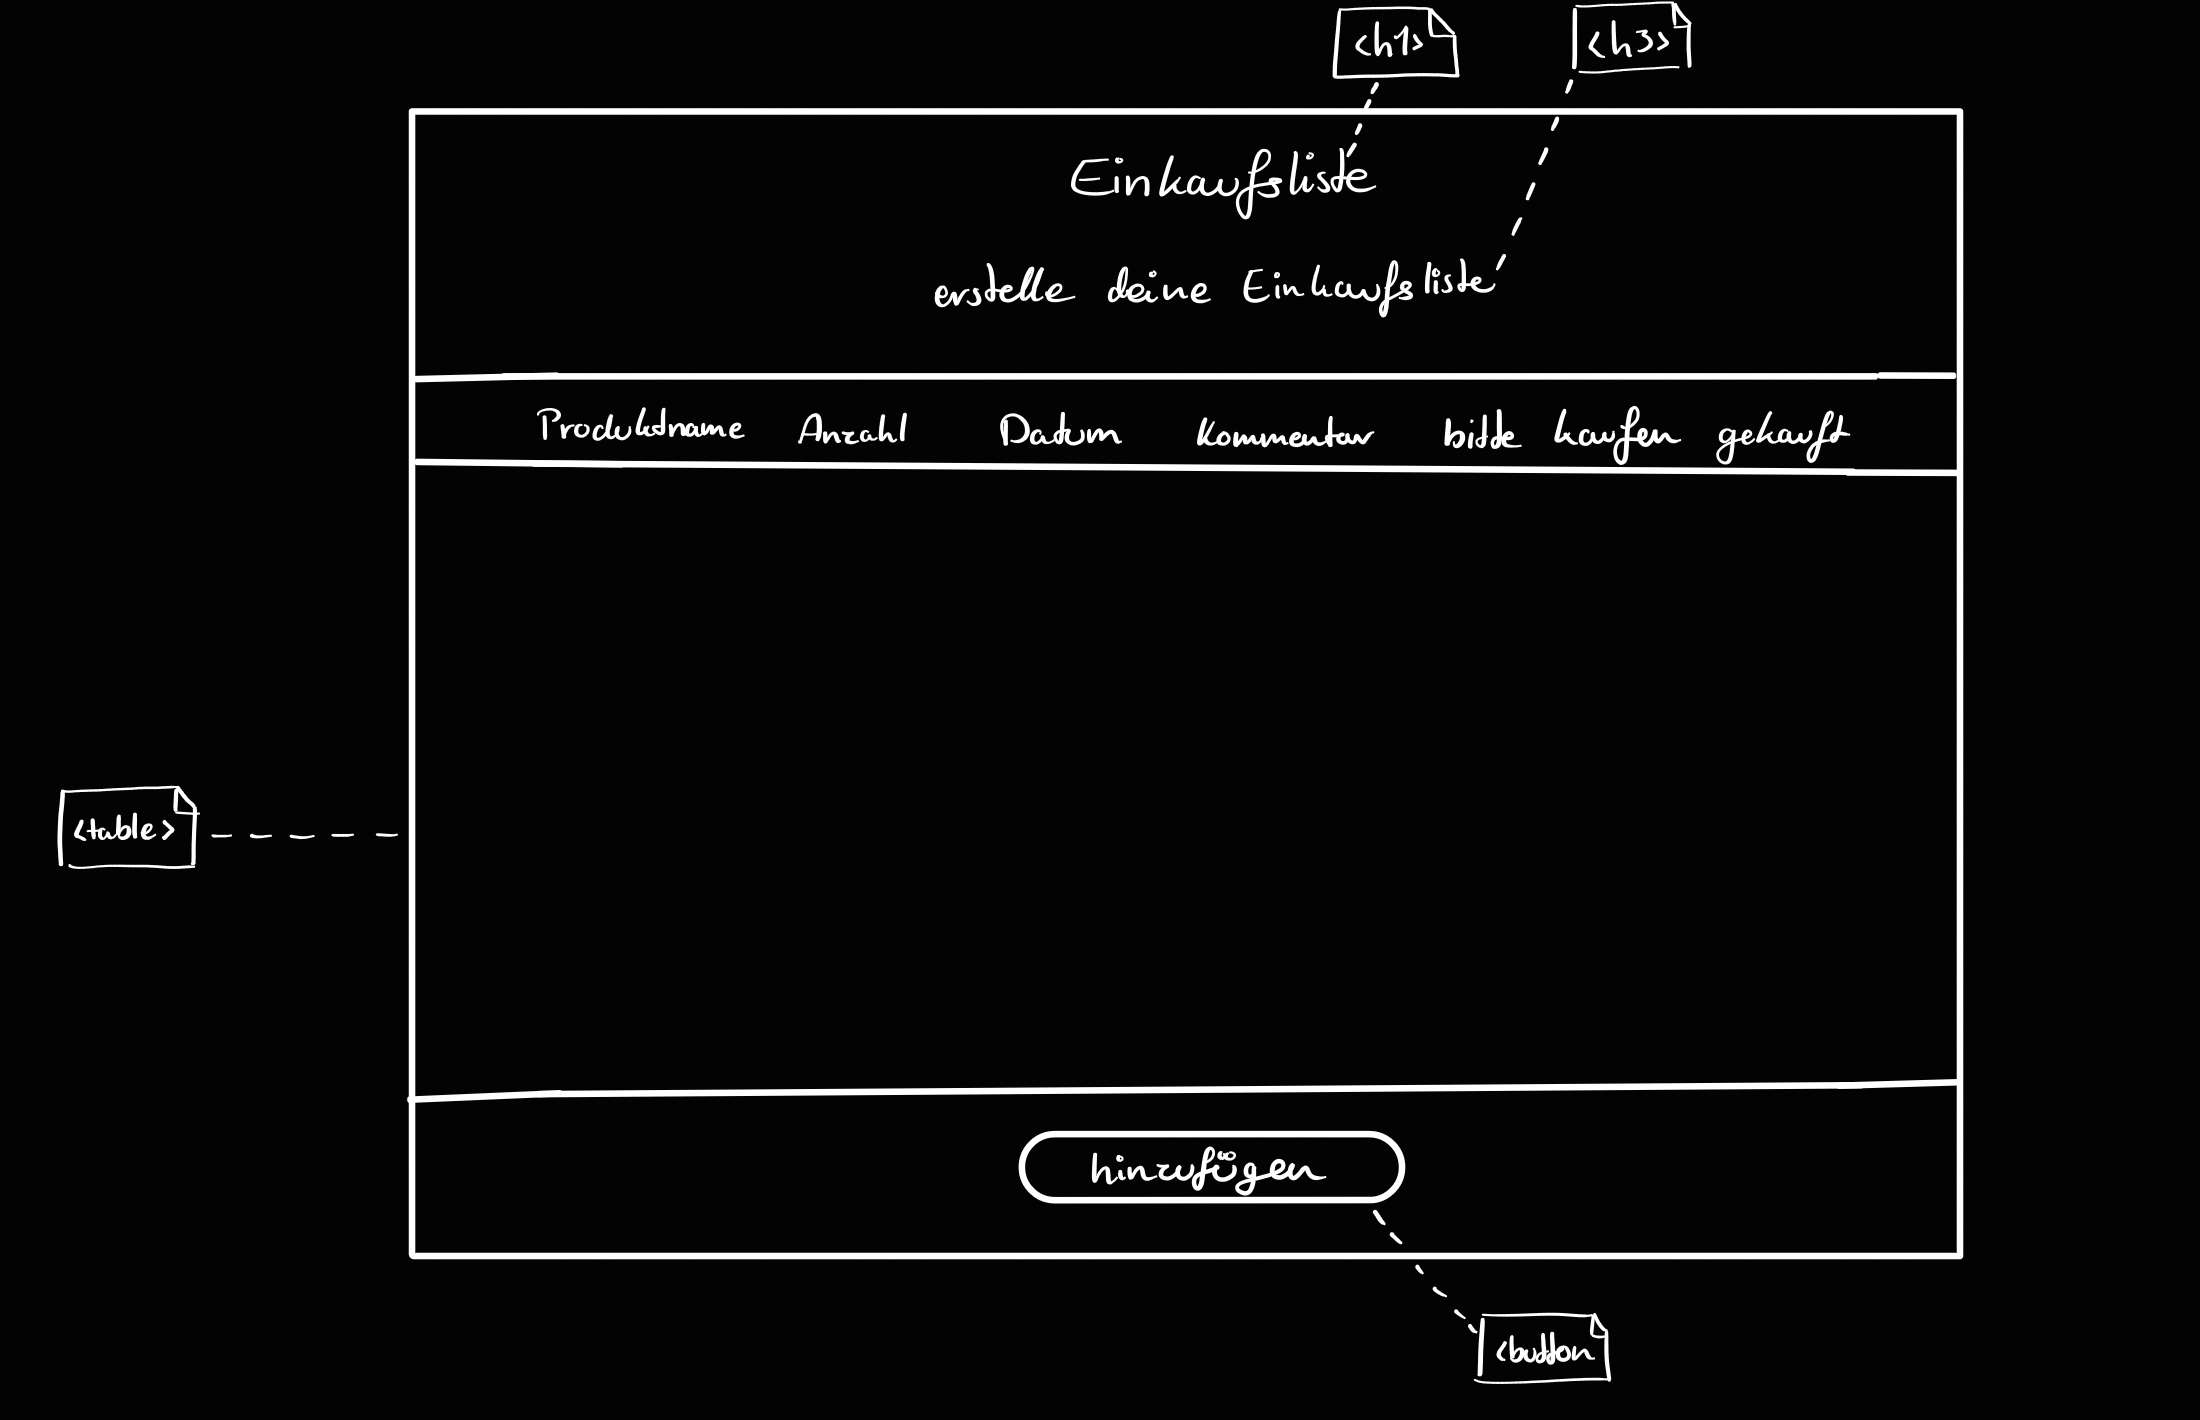 <h1> <h3>
Einkaufsliste
erstelle deine Einkaufsliste
Produktname Anzahl Datum Kommentar bitte kaufen gekauft
<table>
hinzufügen
<button